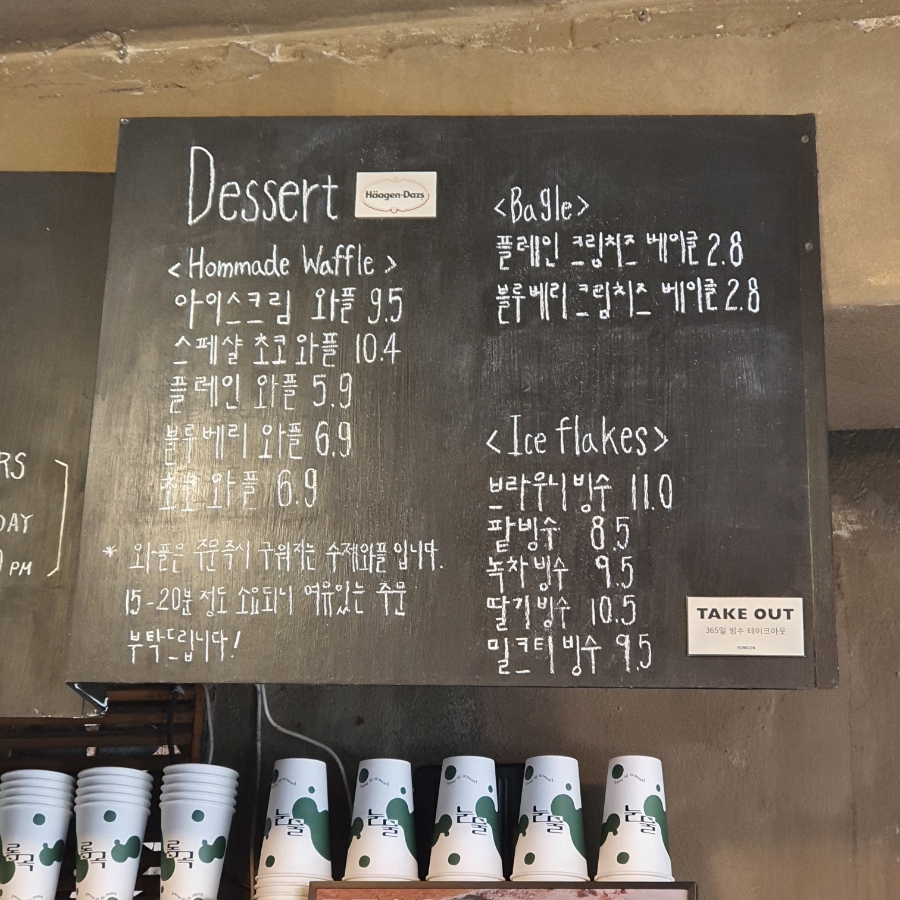 Dessert
Häagen-Dazs
<Hommade Waffle>
아이스크림 와플 9.5
스페샬 초코 와플 10.4
플레인 와플 5.9
블루베리 와플 6.9
초코 와플 6.9
* 와플은 주문즉시 구워지는 수제와플 입니다.
15-20분 정도 소요되니 여유있는 주문
부탁드립니다!
<Bagle>
플레인 크림치즈 베이글 2.8
블루베리 크림치즈 베이글 2.8
<Ice flakes>
브라우니 빙수 11.0
팥빙수 8.5
녹차빙수 9.5
딸기빙수 10.5
밀크티 빙수 9.5
TAKE OUT
365일 빙수 테이크아웃
RS
DAY
PM